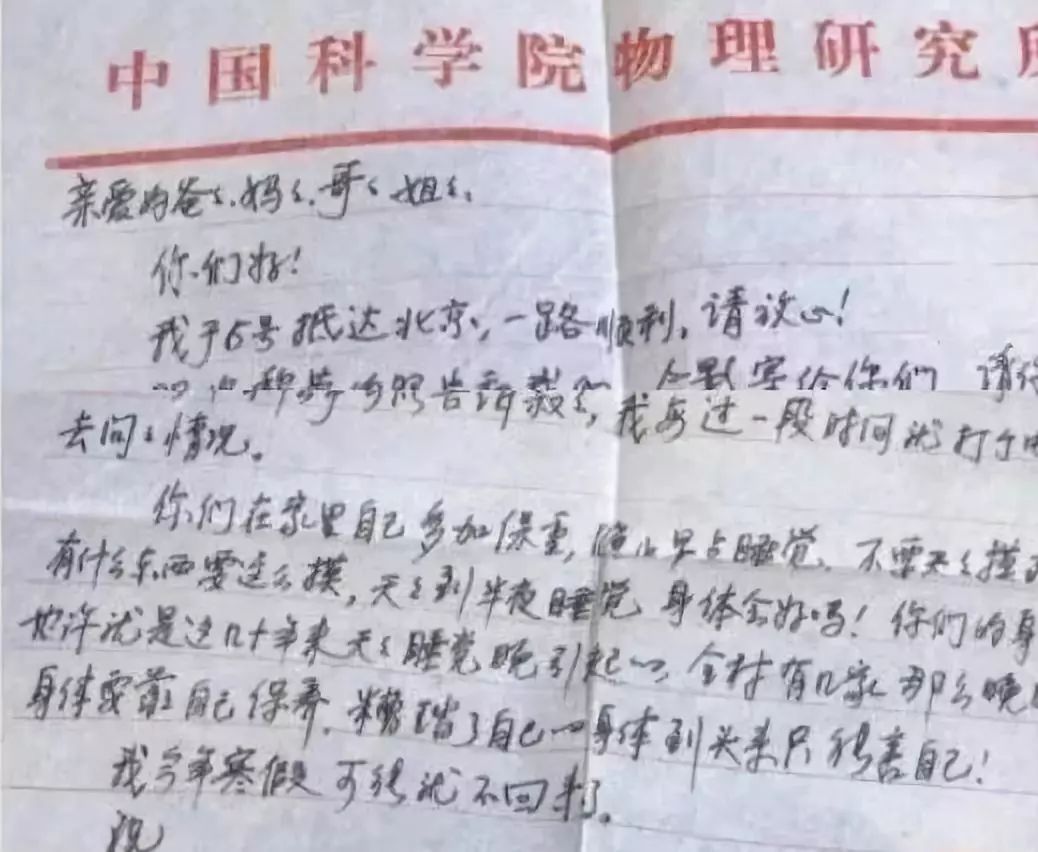 中国科学院物理研究
亲爱的爸々、妈々、哥々、姐々、
你们好！
我于6号抵达北京，一路顺利，请放心！
告诉叔々，寄给你们 请
去问々情况。我每过一段时间就打个
你们在家里自己多加保重，晚上早点睡觉、不要天々摸
有什么东西要这么摸，天々到半夜睡觉 身体会好吗！你们的身
也许就是这几十年来天々睡觉晚引起的，全村有几家那么晚
身体要靠自己保养，糟蹋了自己的身体到头来只能害自己！
我今年寒假可能就不回来了。
祝